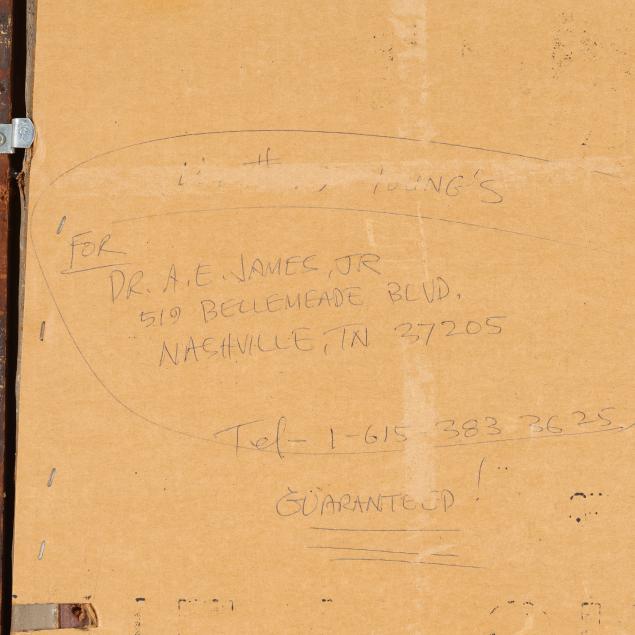 FOR
DR. A.E. JAMES, JR
519 BELLEMEADE BLVD.
NASHVILLE, TN 37205
Tel- 1-615 383 3625
GUARANTEED!